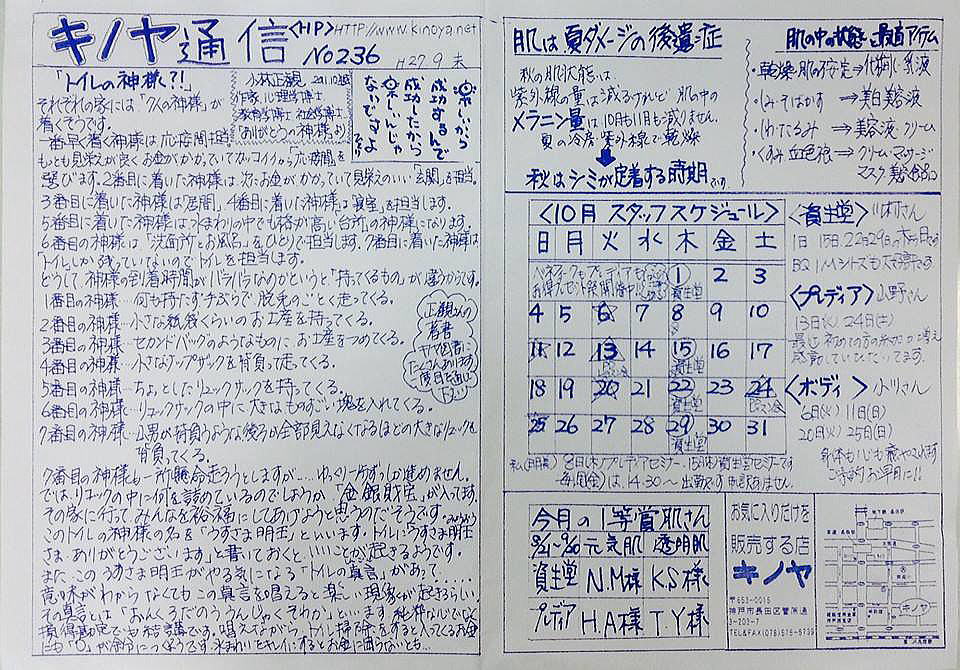 キノヤ通信
<HP>HTTP://www.kinoya.net
No236
H27.9末
「トイレの神様?!」
小林正観
作家、心理学博士
教育学博士 社会学博士
「ありがとうの神様」より
楽しいから
成功するんで
成功したから
楽しいんじゃ
ないですよ
それぞれの家には「7人の神様」が
着くそうです。
一番早く着く神様は応接間担当。
もっとも見栄えが良くお金がかかっていてカッコイイから「応接間」を
選びます。2番目に着いた神様は次にお金がかかっていて見栄えのいい「玄関」を担当。
3番目に着いた神様は「居間」、4番目に着いた神様は「寝室」を担当します。
5番目に着いた神様は水まわりの中でも格が高い台所の神様になります。
6番目の神様は「洗面所とお風呂」をひとりで担当します。7番目に着いた神様は
「トイレしか残っていないのでトイレを担当します。
どうして神様の到着時間がバラバラなのかというと「持ってくるもの」が違うからです。
1番目の神様…何も持たず手ぶらで脱兎のごとく走ってくる。
2番目の神様…小さな紙袋くらいのお土産を持ってくる。
3番目の神様…セカンドバックのようなものにお土産をつめてくる。
4番目の神様…小さなナップザックを背負って走ってくる。
5番目の神様…ちょっとしたリュックサックを持ってくる。
6番目の神様…リュックサックの中に大きなものすごい塊を入れてくる。
7番目の神様…山男が背負うような後ろが全部見えなくなるほどの大きなリュックを
背負ってくる。
正観さんの
著書
キノヤ図書に
たくさんあります
7番目の神様も一所懸命走ろうとしますが…ゆっくり一歩ずつしか進めません。
では、リュックの中に何を詰めているのでしょうか。「金銀財宝」が入ってます。
その家に行ってみんなを裕福にしてあげようと思うのだそうです。
このトイレの神様の名を「うずさま明王」といいます。トイレに「うすさま明王
さまありがとうございます」と書いておくと、いいことが起きるようです。
また、この うすさま明王がやる気になる「トイレの真言」があって……
意味がわからなくてもこの真言を唱えると楽しい現象が起きるらしい
その真言とは「おんくろだのううんじゃくそわか」といいます
唱えながら、トイレ掃除をすると
肌は夏ダメージの後遺症
秋の肌状態は
紫外線の量は減るけれど 肌の中の
メラニン量は10月も11月も減りません。
夏の冷房、紫外線で乾燥
秋はシミが定着する時期です。
肌の中の状態と最適アイテム
・乾燥・肌の不安定⇒化粧水、乳液
・しみ・そばかす ⇒美白美容液
・しわ・たるみ ⇒美容液・クリーム
・くすみ 血色 ⇒クリーム・マッサージ
マスク
<10月 スタッフスケジュール>
日 月 火 水 木 金 土
1 2 3
資生堂
4 5 6 7 8 9 10
11 12 13 14 15 16 17
資生堂
18 19 20 21 22 23 24
資生堂
25 26 27 28 29 30 31
資生堂
8日(木)プレディアセミナー、15日(木)資生堂セミナーです
毎週(金)は、14:30~出勤です
<資生堂>川村さん
1日 15日 22日 29日の木曜日です
<プレディア>山野さん
13日(火) 24日(土)
<ボディ>小川さん
6日(火) 11日(日)
20日(火) 25日(日)
今月の1等賞肌さん
8/21~9/20 元気肌 透明肌
資生堂 N.M様 K.S様
プレディア H.A様 T.Y様
お気に入りだけを
販売する店
キノヤ
〒653-0015
神戸市長田区菅原通
3-203-7
TEL&FAX(078)576-6739
キノヤ